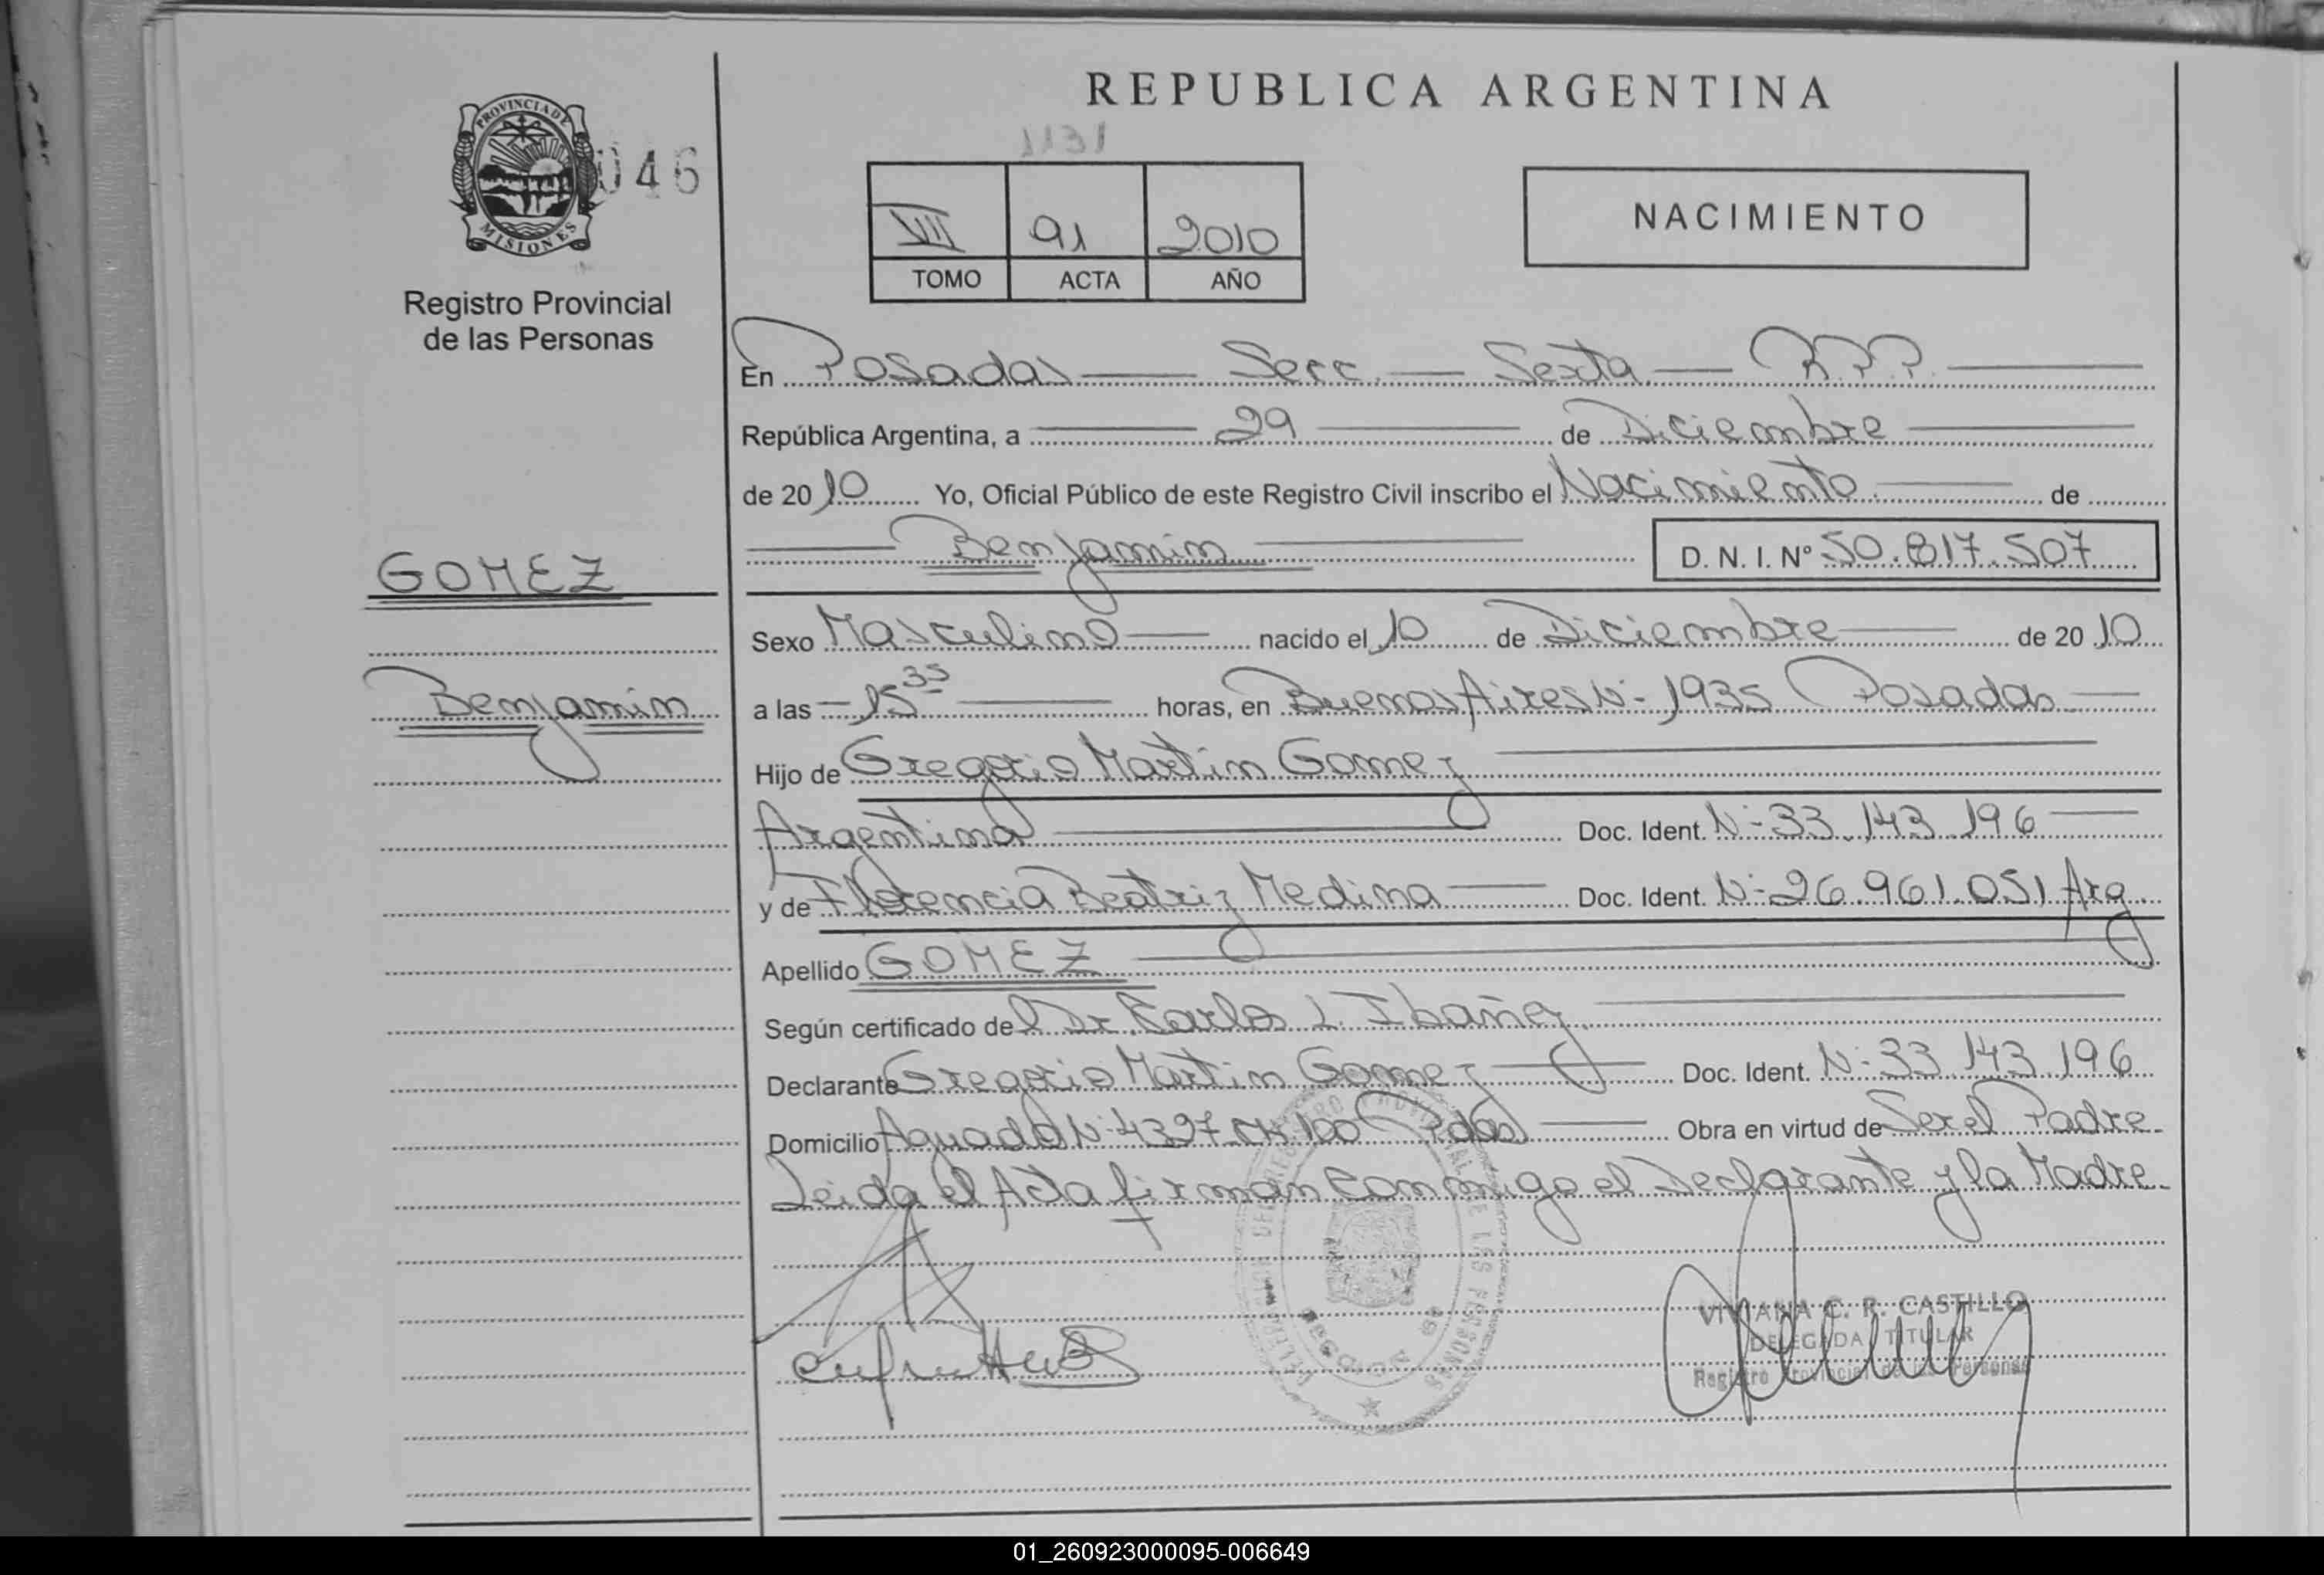 REPUBLICA ARGENTINA
PROVINCIA DE
MISIONES
046
1131
VII 91 2010
TOMO ACTA AÑO
NACIMIENTO
Registro Provincial
de las Personas
En Posadas Secc. Sexta R.P.P.
República Argentina, a 29 de Diciembre
de 2010 Yo, Oficial Público de este Registro Civil inscribo el Nacimiento de
Benjamin D. N. I. Nº 50.817.507
GOMEZ
Benjamin
Sexo Masculino nacido el 10 de Diciembre de 2010
a las 15 35 horas, en Buenos Aires Nº 1935 Posadas
Hijo de Gregorio Martin Gomez
Argentina Doc. Ident. Nº 33.143.196
y de Florencia Beatriz Medina Doc. Ident. Nº 26.961.051 Arg.
Apellido GOMEZ
Según certificado del Dr. Carlos L. Ibañez
Declarante Gregorio Martin Gomez Doc. Ident. Nº 33.143.196
Domicilio Aguado Nº 4397 CH 100 Pdas Obra en virtud de Ser el Padre
Leida el Acta firman conmigo el Declarante y la Madre
VIVIANA C. R. CASTILLO
DELEGADA TITULAR
Registro Provincial de las Personas
01_260923000095-006649